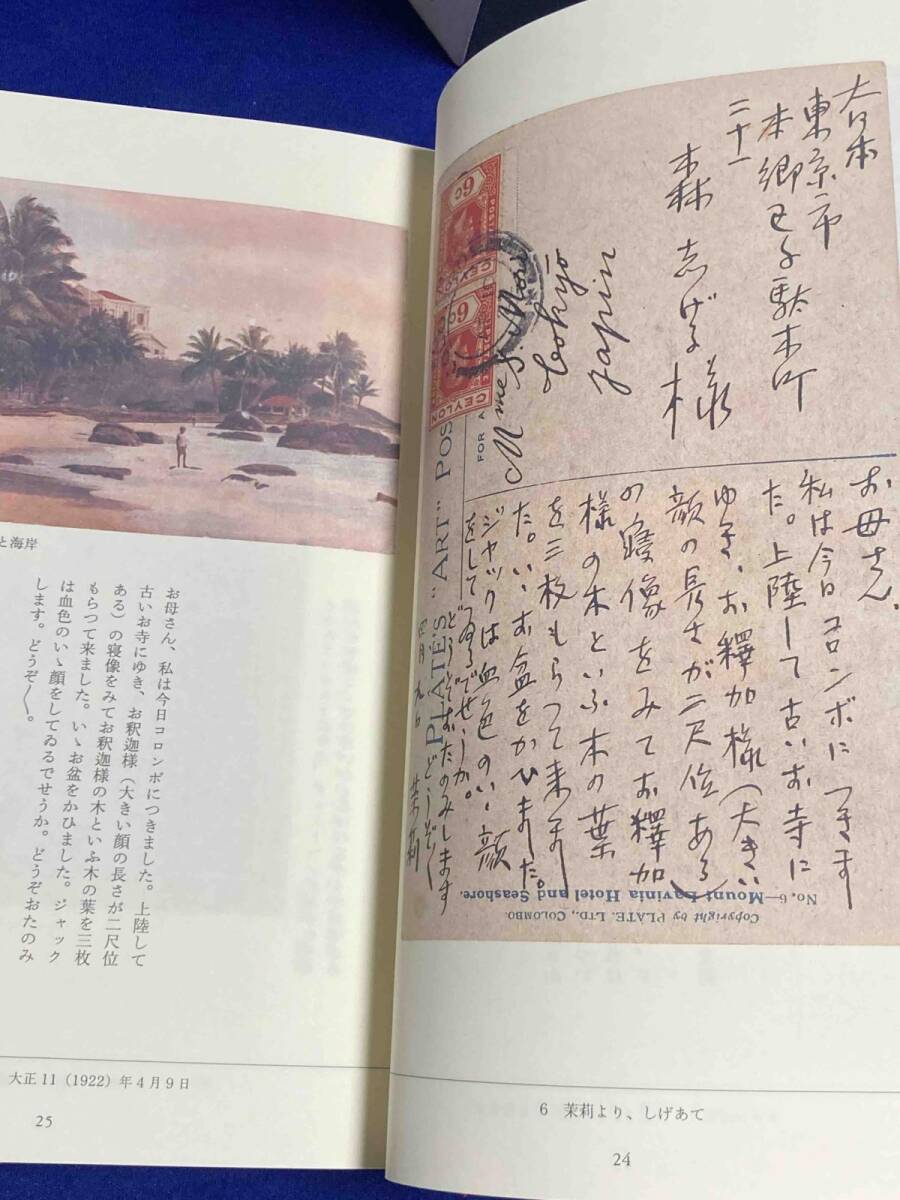 大日本
東京市
本郷区千駄木町
二十一
森志げる様
Mme S. Mori
Tokyo
Japin
CEYLON
6c
CEYLON
6c
PLATE'S "ART" POS
FOR A
お母さん、
私は今日コロンボにつきまし
た。上陸して古いお寺に
ゆき、お釋加様（大きい
顔の長さが二尺位ある）
の寝像をみてお釋加
様の木といふ木の葉
を三枚もらつて来まし
た。いゝお盆をかひました。
ジャックは血色のいゝ顔
をしてゐるでせうか。
どうぞおたのみします
どうぞ〱
四月九日 茉莉
No. 6—Mount Lavinia Hotel and Seashore.
Copyright by PLATE, LTD., COLOMBO.
6 茉莉より、しげあて
24
と海岸
お母さん、私は今日コロンボにつきました。上陸して
古いお寺にゆき、お釈迦様（大きい顔の長さが二尺位
ある）の寝像をみてお釈迦様の木といふ木の葉を三枚
もらつて来ました。いゝお盆をかひました。ジャック
は血色のいゝ顔をしてゐるでせうか。どうぞおたのみ
します。どうぞ〱。
大正11（1922）年4月9日
25